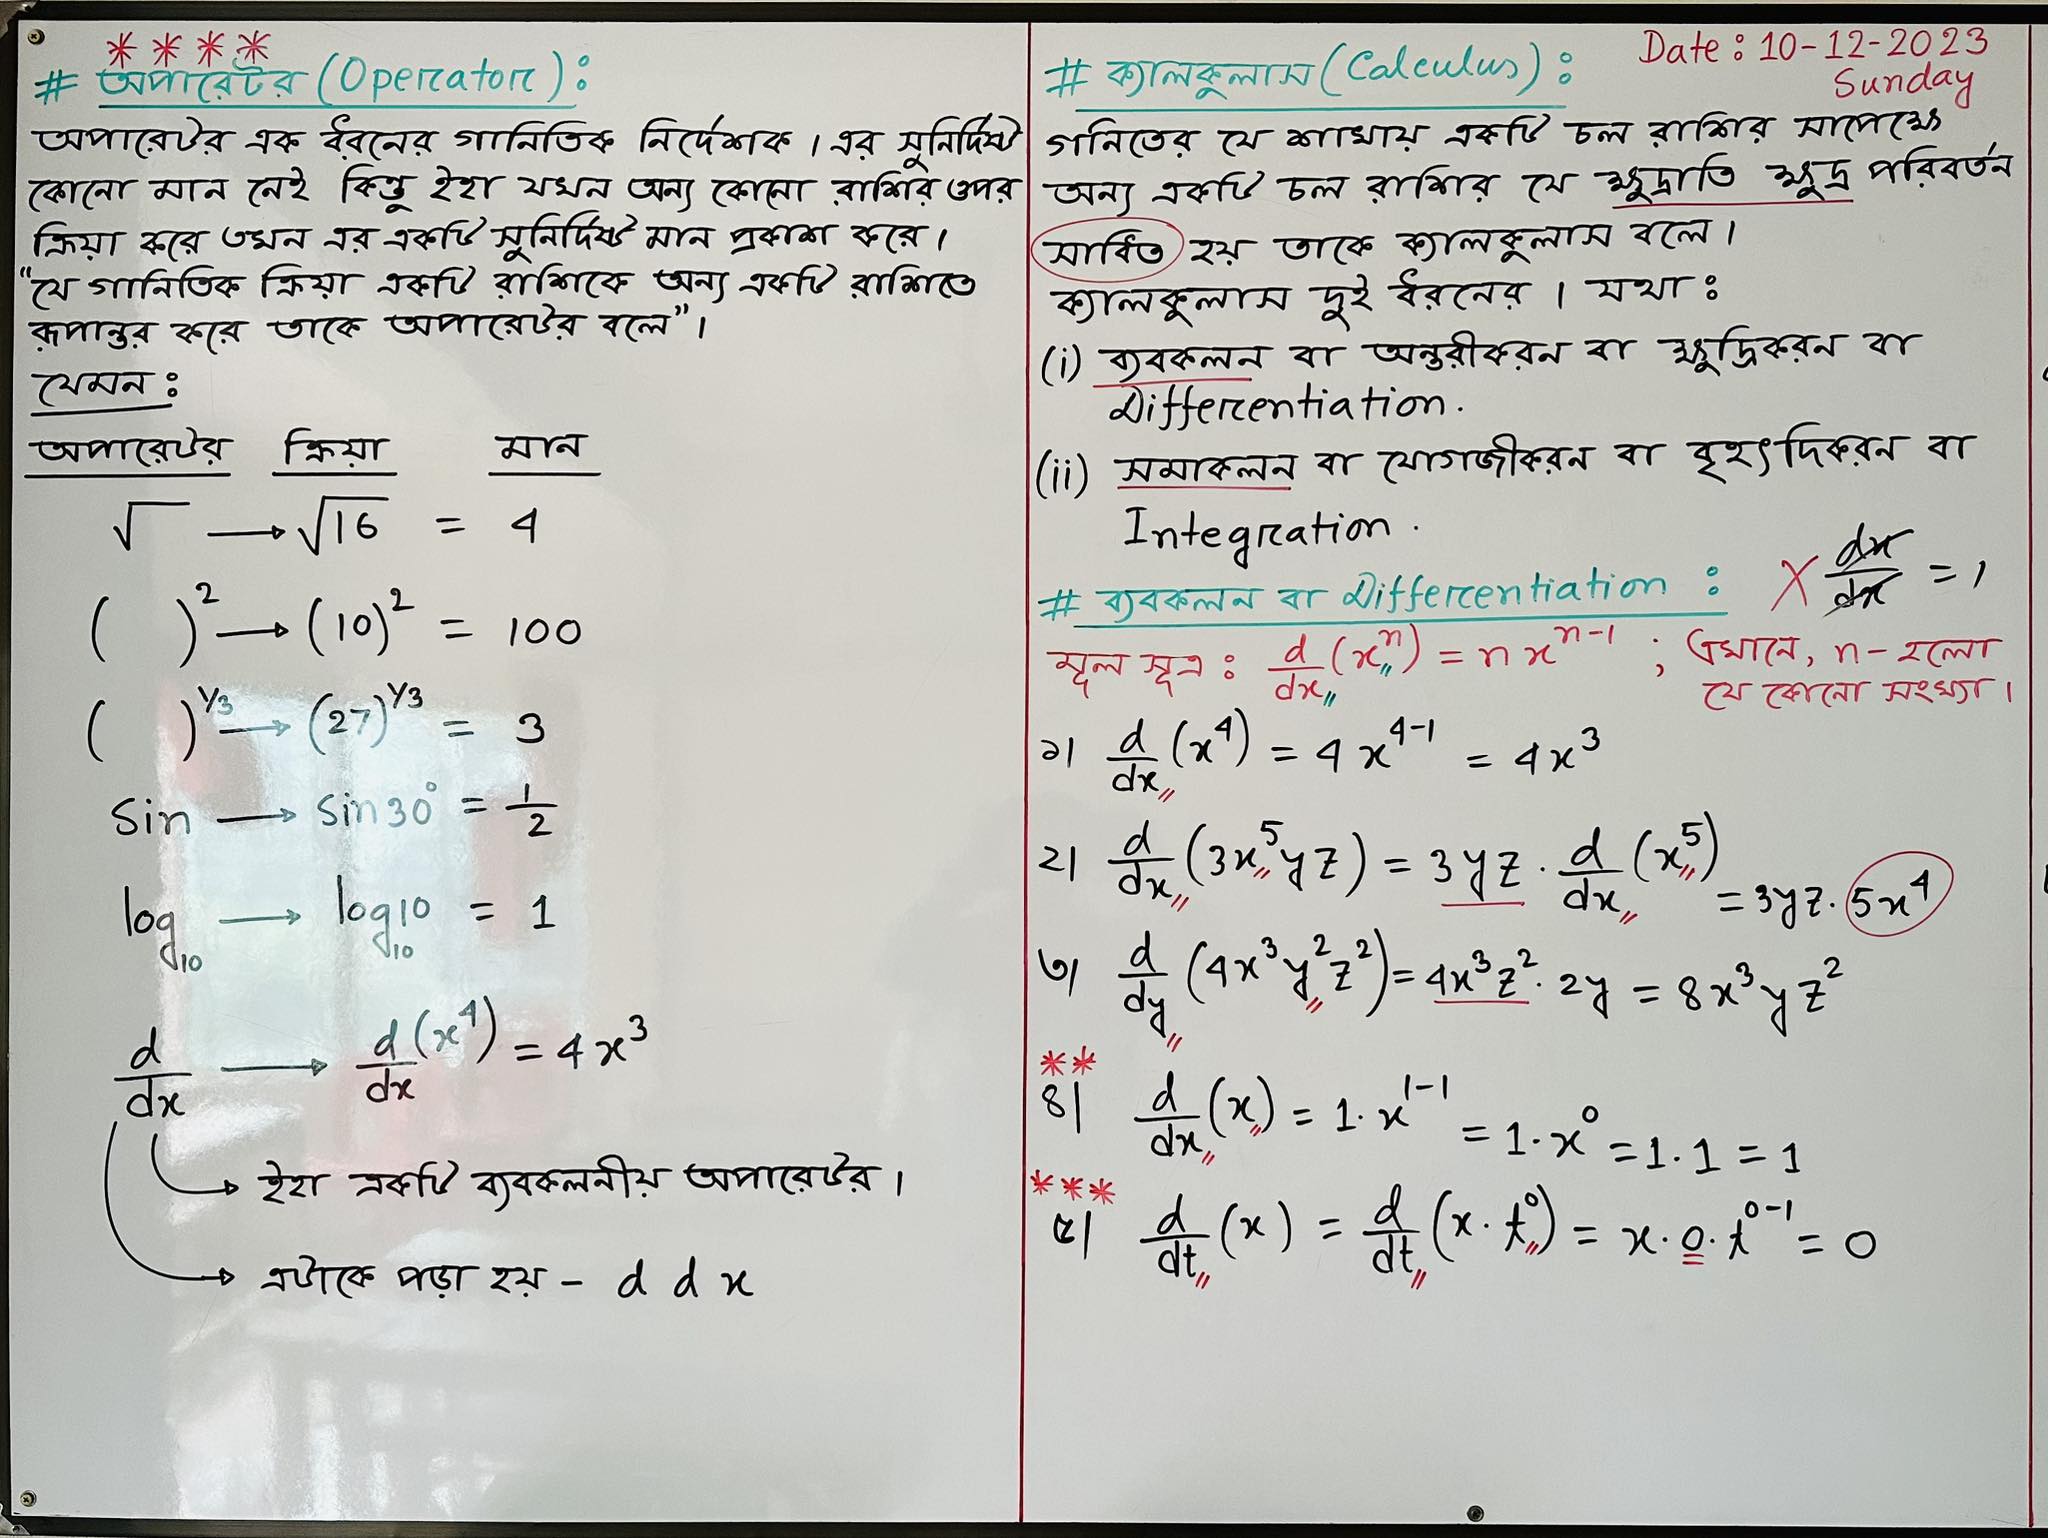 ****
# অপারেটর (Operator):
অপারেটর এক ধরনের গানিতিক নির্দেশক। এর সুনির্দিষ্ট
কোনো মান নেই কিন্তু ইহা যখন অন্য কোনো রাশির ওপর
ক্রিয়া করে তখন এর একটি সুনির্দিষ্ট মান প্রকাশ করে।
"যে গানিতিক ক্রিয়া একটি রাশিকে অন্য একটি রাশিতে
রূপান্তর করে তাকে অপারেটর বলে"।
যেমন:
অপারেটর ক্রিয়া মান
√ → √16 = 4
( )² → (10)² = 100
( )^1/3 → (27)^1/3 = 3
sin → sin30° = 1/2
log₁₀ → log₁₀10 = 1
d/dx → d/dx (x⁴) = 4x³
→ ইহা একটি ব্যবকলনীয় অপারেটর।
→ এটাকে পড়া হয় - d d x
Date: 10-12-2023
Sunday
# ক্যালকুলাস (Calculus):
গনিতের যে শাখায় একটি চল রাশির সাপেক্ষে
অন্য একটি চল রাশির যে ক্ষুদ্রাতি ক্ষুদ্র পরিবর্তন
সাধিত হয় তাকে ক্যালকুলাস বলে।
ক্যালকুলাস দুই ধরনের। যথা:
(i) ব্যবকলন বা অন্তরীকরন বা ক্ষুদ্রিকরন বা
Differentiation.
(ii) সমাকলন বা যোগজীকরন বা বৃহৎদিকরন বা
Integration.
# ব্যবকলন বা Differentiation : X dx/dx = 1
মূল সূত্র: d/dx (xⁿ) = n xⁿ⁻¹ ; এখানে, n- হলো
যে কোনো সংখ্যা।
১। d/dx (x⁴) = 4x⁴⁻¹ = 4x³
২। d/dx (3x⁵yz) = 3yz · d/dx (x⁵) = 3yz · 5x⁴
৩। d/dy (4x³y²z²) = 4x³z² · 2y = 8x³yz²
**
৪। d/dx (x) = 1 · x¹⁻¹ = 1 · x⁰ = 1 · 1 = 1
***
৫। d/dt (x) = d/dt (x · t⁰) = x · 0 · t⁰⁻¹ = 0